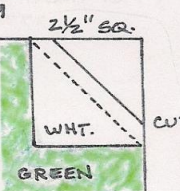 2½" SQ.
WHT.
CU
GREEN